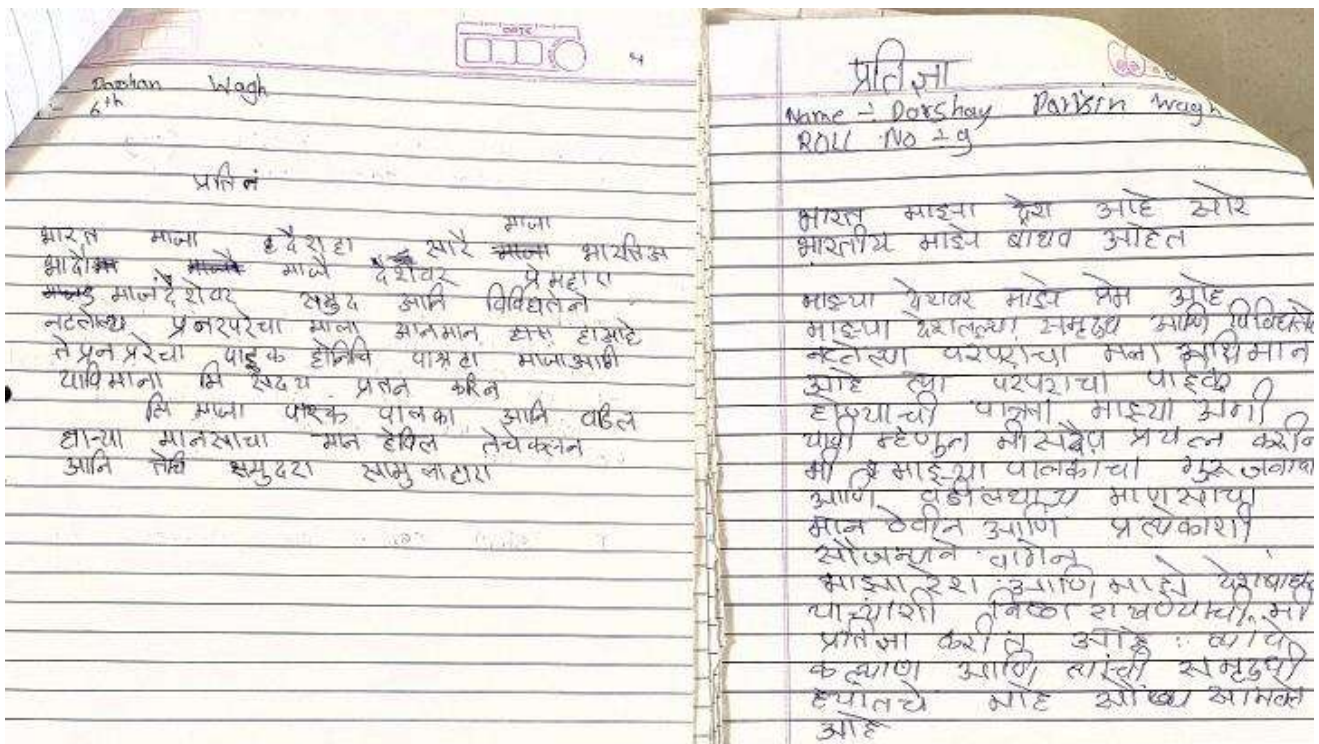 DATE
4
Darshan Wagh
6th
प्रतितं
माजा
भारत माजा देशहा सारे भारतिअ
भादौ माजे देशेवर प्रेमहाए
माजं देशेवर समुद आनि विविधतेने
नटलेल्य प्रनरपरेचा माला आनमान हाआहे
ते प्रनप्ररेचा पाइक होनिचि पात्रहा माजाआगी
याविमाना मि सदय प्रतन करिन
मि माजा पारक पालका आनि वडिल
धार्‍या मानसाचा मान ठेविल तेचेकलन
आनि तेचि समुदरा सामुजाहारा
प्रतिज्ञा
Name - Dorshay Parvin Wagh
ROLL NO - 9
भारत माझ्या देश आहे सारे
भारतीय माझे बाधव आहेत
माझ्या देशावर माझे प्रेम आहे
माझ्या देशातल्या समृद्ध आणि विविधतेने
नटलेल्या परपरांचा मला अभिमान
आहे त्या परपराचा पाईक
होण्याची पात्रता माझ्या अंगी
यावी म्हणुन मी सदैव प्रयत्न करीन
मी माझ्या पालकाचा गुरूजनाचा
आणि वडीलधार्‍या माणसाचा
मान ठेवीन आणि प्रत्येकाशी
सौजन्याने वागेन
माझा देश आणि माझे देशबाधव
याच्यांशी निष्ठा राखण्याची मी
प्रतिज्ञा करीत आहे त्याचे
कल्याण आणि त्यांची समृद्धी
ह्यातचे माहे सौख्य सामवले
आहे